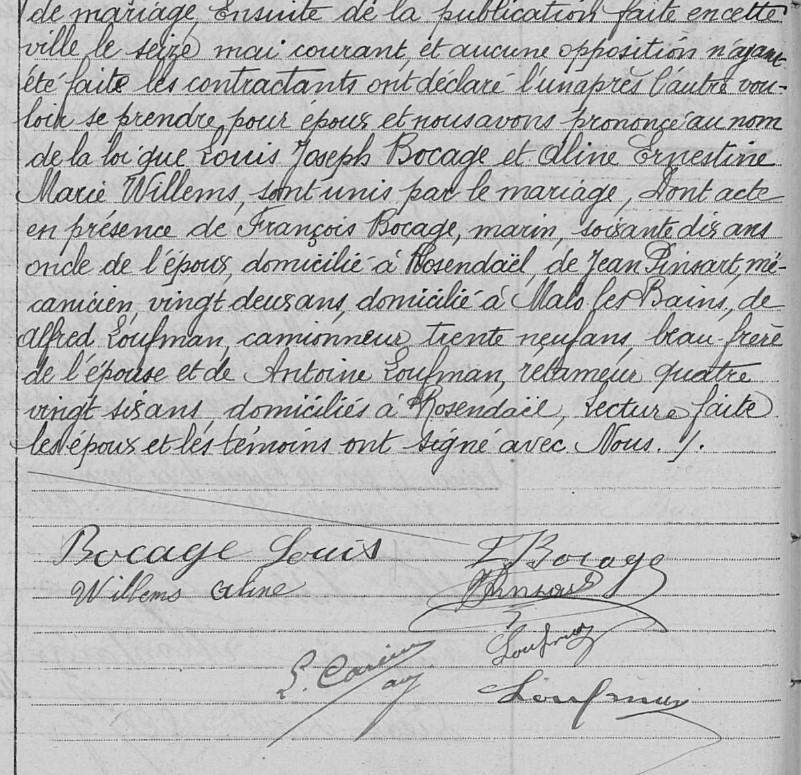 de mariage, Ensuite de la publication faite en cette
ville le seize mai courant, et aucune opposition n'ayant
été faite les contractants ont déclaré l'un après l'autre vou-
loir se prendre pour époux et nous avons prononcé au nom
de la loi que Louis Joseph Bocage et Aline Ernestine
Marie Willems, sont unis par le mariage, Dont acte
en présence de François Bocage, marin, soixante dix ans
oncle de l'époux, domicilié à Rosendaël, de Jean Pinsart, mé-
canicien, vingt deux ans, domicilié à Malo les Bains, de
Alfred Loufman, camionneur, trente neuf ans, beau-frère
de l'épouse et de Antoine Loufman, rétameur quatre
vingt six ans, domiciliés à Rosendaël, Lecture faite
les époux et les témoins ont signé avec Nous. /.
Bocage Louis F Bocage
Willems Aline Pinsart
Loufman
Loufman